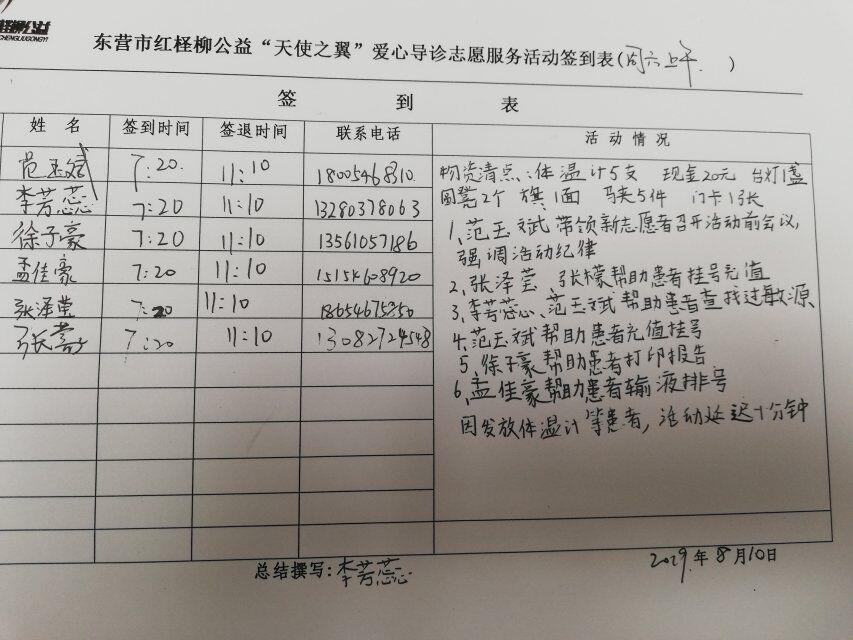 CHENGLIUGONGYI
东营市红柽柳公益“天使之翼”爱心导诊志愿服务活动签到表(周六上午. )
签 到 表
姓 名 签到时间 签退时间 联系电话 活动情况
范玉斌 7:20. 11:10 1800546
李芳蕊 7:20 11:10 13280378063
徐子豪 7:20 11:10 13561057186
孟佳豪 7:20 11:10 15154608920
张泽莹 7:20 11:10
张 7:20 11:10 13082724548
物资清点:体温计5支 现金20元 台灯1盏
圆凳2个 旗1面 马夹5件 门卡1张
1、范玉斌带领新志愿者召开活动前会议,
强调活动纪律
2、张泽莹、张檬帮助患者挂号充值
3、李芳蕊、范玉斌帮助患者查找过敏源
4、范玉斌帮助患者充值挂号
5、徐子豪帮助患者打印报告
6、孟佳豪帮助患者输液排号
因发放体温计等患者,活动延迟十分钟
总结撰写:李芳蕊
2019.年8月10日